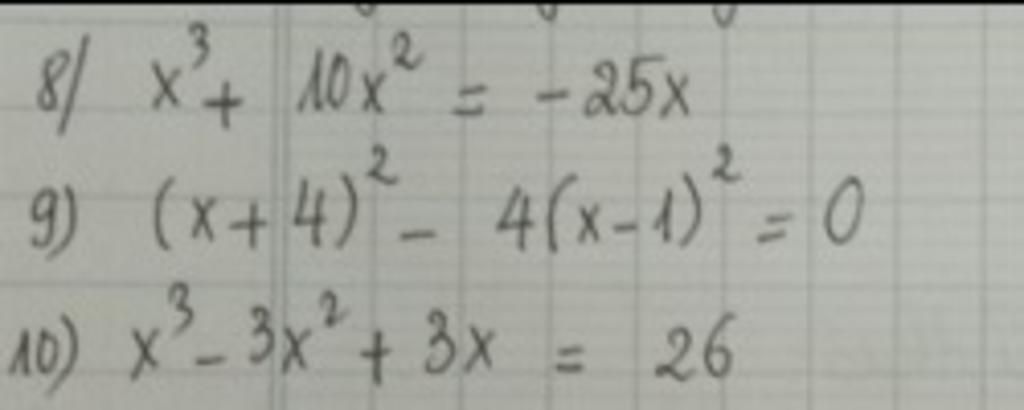 8/ x³ + 10x² = -25x
9) (x+4)² - 4(x-1)² = 0
10) x³ - 3x² + 3x = 26